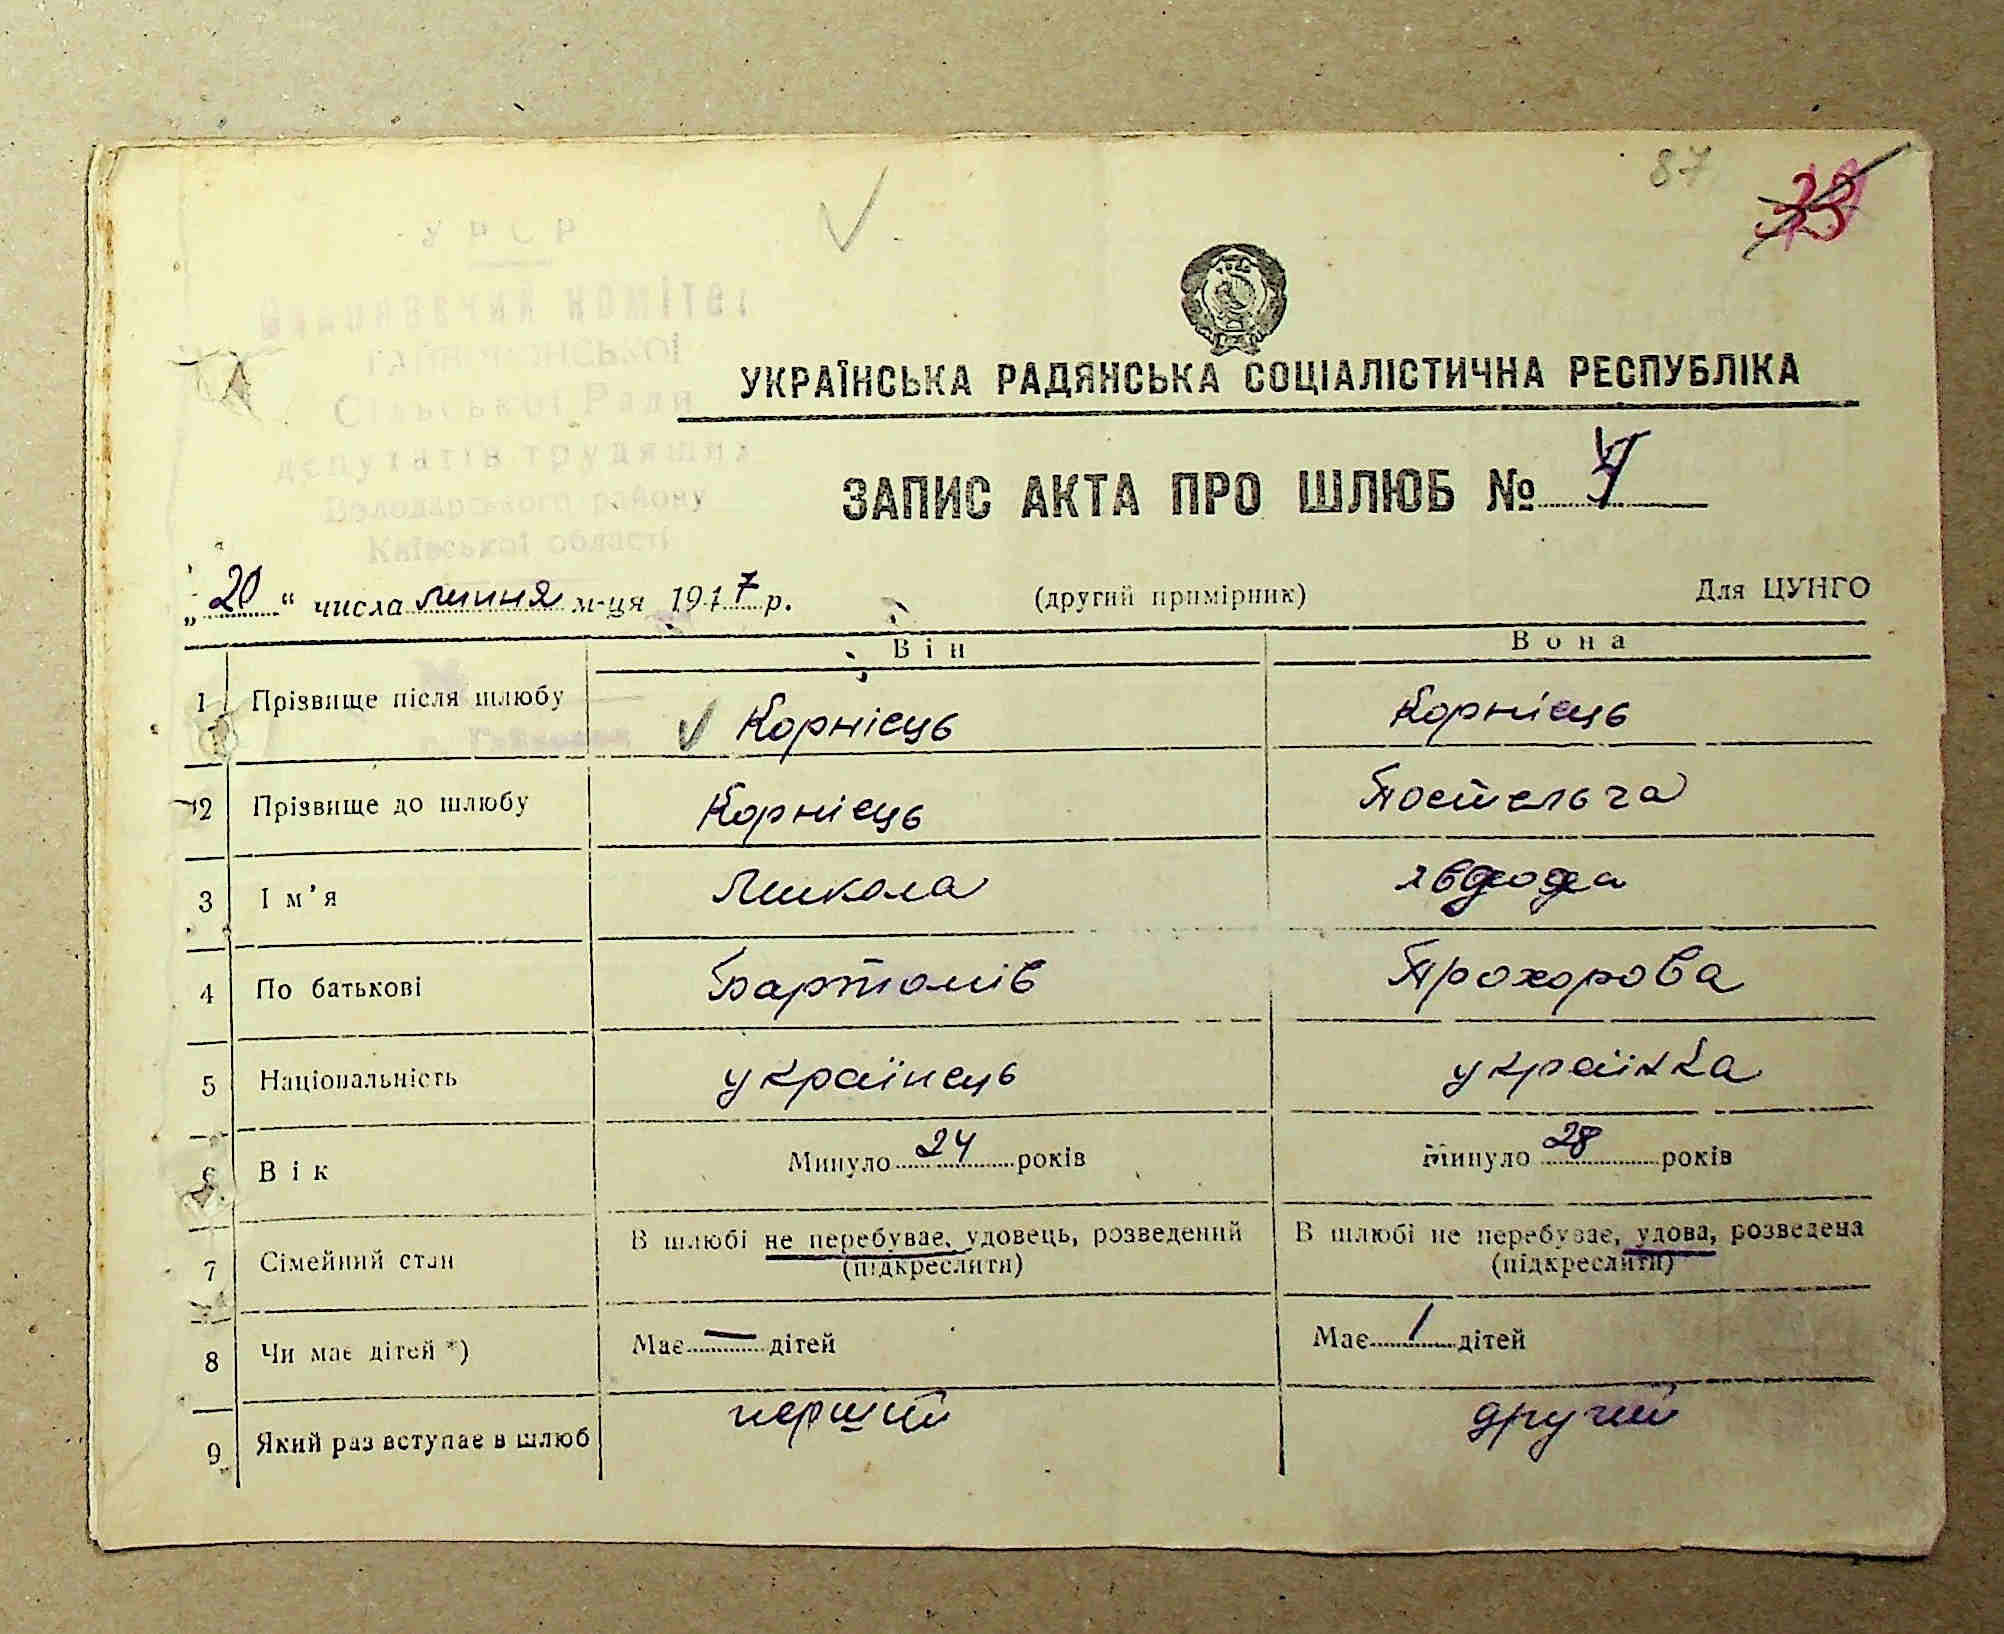 87
33
УРСР
Виконавчий комітет
Сільської Ради
депутатів трудящих
Володарського району
Київської області
УКРАЇНСЬКА РАДЯНСЬКА СОЦІАЛІСТИЧНА РЕСПУБЛІКА
ЗАПИС АКТА ПРО ШЛЮБ №
„20“ числа липня м-ця 1947 р. (другий примірник) Для ЦУНГО
Він Вона
1 Прізвище після шлюбу Корнієць Корнієць
2 Прізвище до шлюбу Корнієць Постельга
3 Ім’я Микола Явдоха
4 По батькові Бартомів Прохорова
5 Національність українець українка
6 Вік Минуло 24 років Минуло 28 років
7 Сімейний стан В шлюбі не перебуває, удовець, розведений В шлюбі не перебуває, удова, розведена
(підкреслити) (підкреслити)
8 Чи має дітей *) Має — дітей Має 1 дітей
9 Який раз вступає в шлюб перший другий